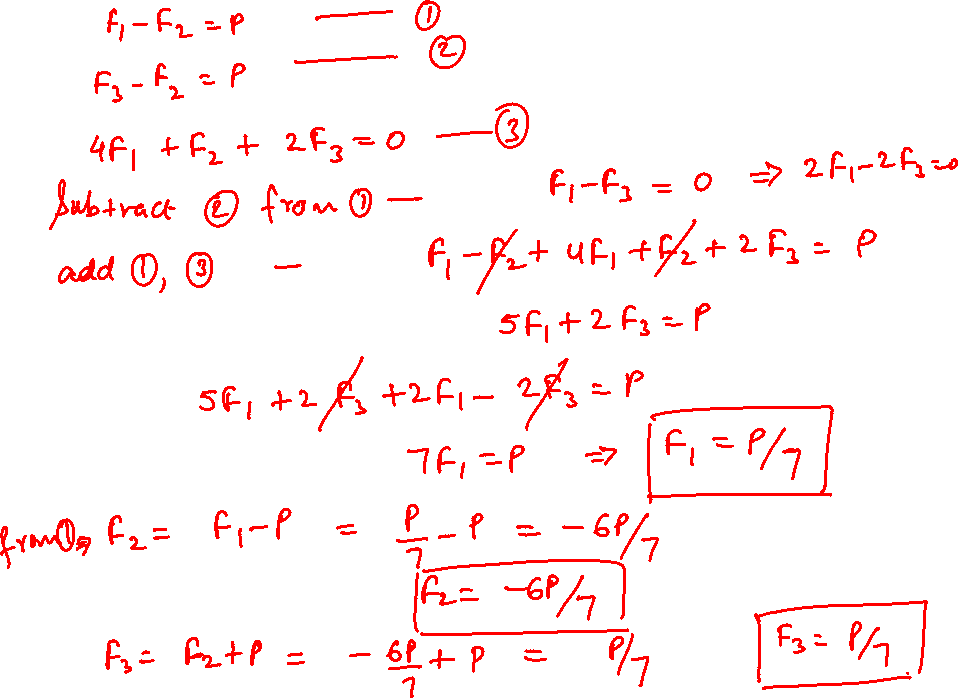 F₁ - F₂ = P —— ①
F₃ - F₂ = P —— ②
4F₁ + F₂ + 2F₃ = 0 —— ③
Subtract ② from ① — F₁ - F₃ = 0 ⇒ 2F₁ - 2F₃ = 0
add ①, ③ — F₁ - F₂ + 4F₁ + F₂ + 2F₃ = P
5F₁ + 2F₃ = P
5F₁ + 2F₃ + 2F₁ - 2F₃ = P
7F₁ = P ⇒ F₁ = P/7
from ①, F₂ = F₁ - P = P/7 - P = -6P/7
F₂ = -6P/7
F₃ = F₂ + P = -6P/7 + P = P/7 F₃ = P/7